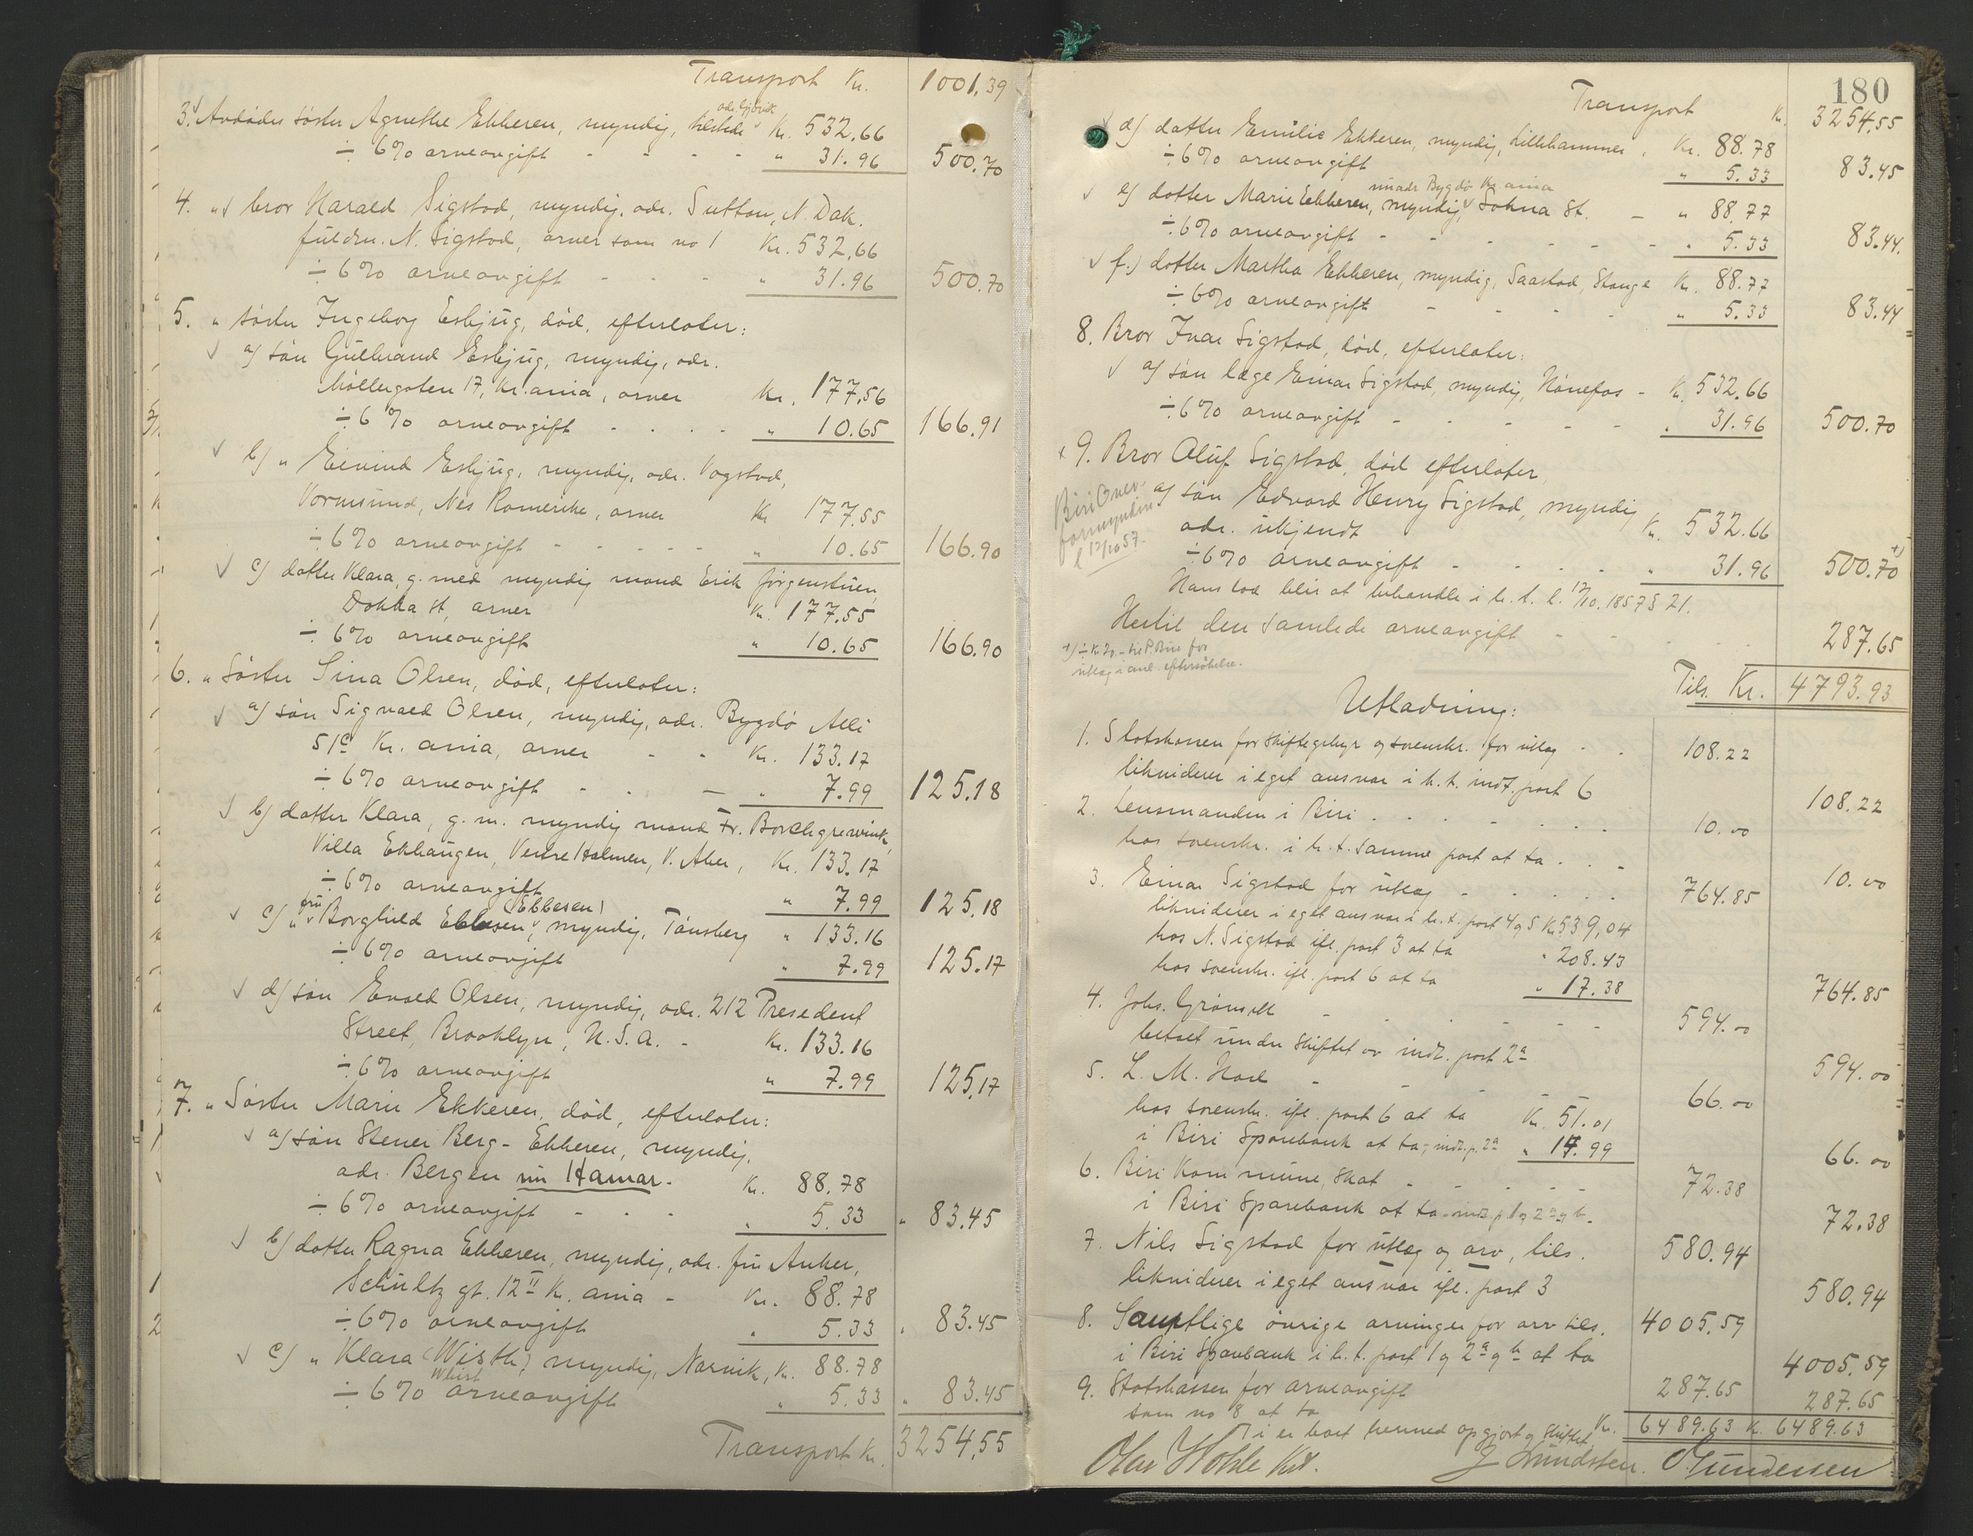 Transport Kr. 1001,39
3. Avdødes søster Agnethe Ekkeren, myndig, adr. Gjøvik Kr. 532.66
÷ 6% arveavgift - - - - " 31.96 500.70
4. " bror Harald Sigstad, myndig, adr. Sutton, N. Dak.
fuldm. N. Sigstad, arver som no 1 Kr. 532,66
÷ 6% arveavgift - - - " 31.96 500.70
5. " søster Ingeborg Esbjug, død, efterlater:
a) søn Gulbrand Esbjug, myndig, adr.
Møllergaten 17, Kr.ania, arver Kr. 177,56
÷ 6% arveavgift - - - - " 10.65 166.91
b) " Eivind Esbjug, myndig, adr. Vogstad,
Vormsund, Nes Romerike, arver Kr 177,55
÷ 6% arveavgift - - - - - " 10.65 166.90
c) datter Klara, g. med myndig mand Erik Jørgenstuen,
Dokka st, arver Kr. 177,55
÷ 6% arveavgift " 10.65 166.90
6. " Søster Sina Olsen, død, efterlater:
a) søn Sigvald Olsen, myndig, adr. Bygdø Alle
51c Kr. ania, arver - - Kr. 133.17
÷ 6% arveavgift - - - " 7.99 125.18
b) datter Klara, g. m. myndig mand Fr. Borchgrevink,
Villa Ekhaugen, Vestre Holmen, V. Aker, Kr. 133.17
÷ 6% arveavgift " 7.99 125.18
c) " fru Borghild Ebbesen (Ebbesen), myndig, Tønsberg " 133.16
÷ 6% arveavgift " 7.99 125.17
d) søn Evald Olsen, myndig, adr. 212 Presedent
Street, Brooklyn, U.S.A. - Kr. 133.16
÷ 6% arveavgift " 7.99 125,17
7. " Søster Marie Ekkeren, død, efterlater:
a) søn Stener Berg-Ekkeren, myndig,
adr. Bergen nu Hamar. Kr. 88.78
÷ 6% arveavgift - - - " 5.33 " 83.45
b) datter Ragna Ekkeren, myndig, adr. fru Anker,
Schultz gt. 12 II Kr. ania - Kr. 88.78
÷ 6% arveavgift " 5.33 " 83.45
c) " Klara (Wisth), myndig, Narvik, Kr. 88.78
÷ 6% arveavgift " 5.33 " 83.45
Transport Kr. 3254,55
180
Transport Kr. 3254,55
d) datter Emilie Ekkeren, myndig, Lillehammer, Kr. 88.78
÷ 6% arveavgift " 5.33 83.45
nu adr Bygdø Kr. ania
e) dotter Marie Ekkeren, myndig, Sokna St. - " 88,77
÷ 6% arveavgift - - - - - - " 5.33 83.44.
f.) dotter Martha Ekkeren, myndig, Saastad, Stange Kr. 88.77
÷ 6% arveavgift - - - - " 5.33 83.44
8. Bror Ivar Sigstad, død, efterlater:
a) søn læge Einar Sigstad, myndig, Hønefos - Kr. 532.66
÷ 6% arveavgift - - - - - " 31.96 500.70
x 9. Bror Oluf Sigstad, død efterlater,
a) søn Edvard Henry Sigstad, myndig
adr. ukjendt Kr. 532.66
÷ 6% arveavgift - - - - " 31.96 500.70 x)
Biri Over-
formynderi
l 12/10 57.
Hans lod blir at behandle i h. t. l. 12/10. 1857 § 21.
Hertil den samlede arveavgift - - - - 287.65
Tils. Kr. 4793.93
Utlodning:
1. Statskassen for skiftegebyr og sorenskr. for utlæg - - 108.22
likviderer i eget ansvar i h. t. indt. post 6 108.22
2. Lensmanden i Biri . . . . . . . 10.00
hos sorenskr. i h. t. samme post at ta . . . 10.00
3. Einar Sigstad for utlæg - - - - - 764.85
likviderer i eget ansvar i h. t. post 4 og 5 Kr. 539,04
hos N. Sigstad ifl. post 3 at ta " 208.43
hos sorenskr. ifl. post 6 at ta " 17.38 764.85
4. Johs. Grønvolt - - - - - 594.00
betalt under skiftet av indt. post 2a 594.00
5. L. M. Hoel - - - - 66.00
hos sorenskr. ifl. post 6 at ta Kr. 51.01
i Biri Sparebank at ta, indt. p. 2a " 14.99 66.00
6. Biri Kommune, Skat - - - - - 72.38
i Biri Sparebank at ta - indt. p. 1 og 2a og b. 72.38
7. Nils Sigstad for utlæg og arv, tils. 580.94
likviderer i eget ansvar ifl. post 3 580.94
8. Samtlige øvrige arvinger for arv tils. 4005,59
i Biri Sparebank i h. t. post 1 og 2a og b at ta 4005.59
9. Statskassen for arveavgift 287.65 287.65
som no 8 at ta Kr. 6489.63 Kr. 6489.63
hermed opgjort og sluttet.